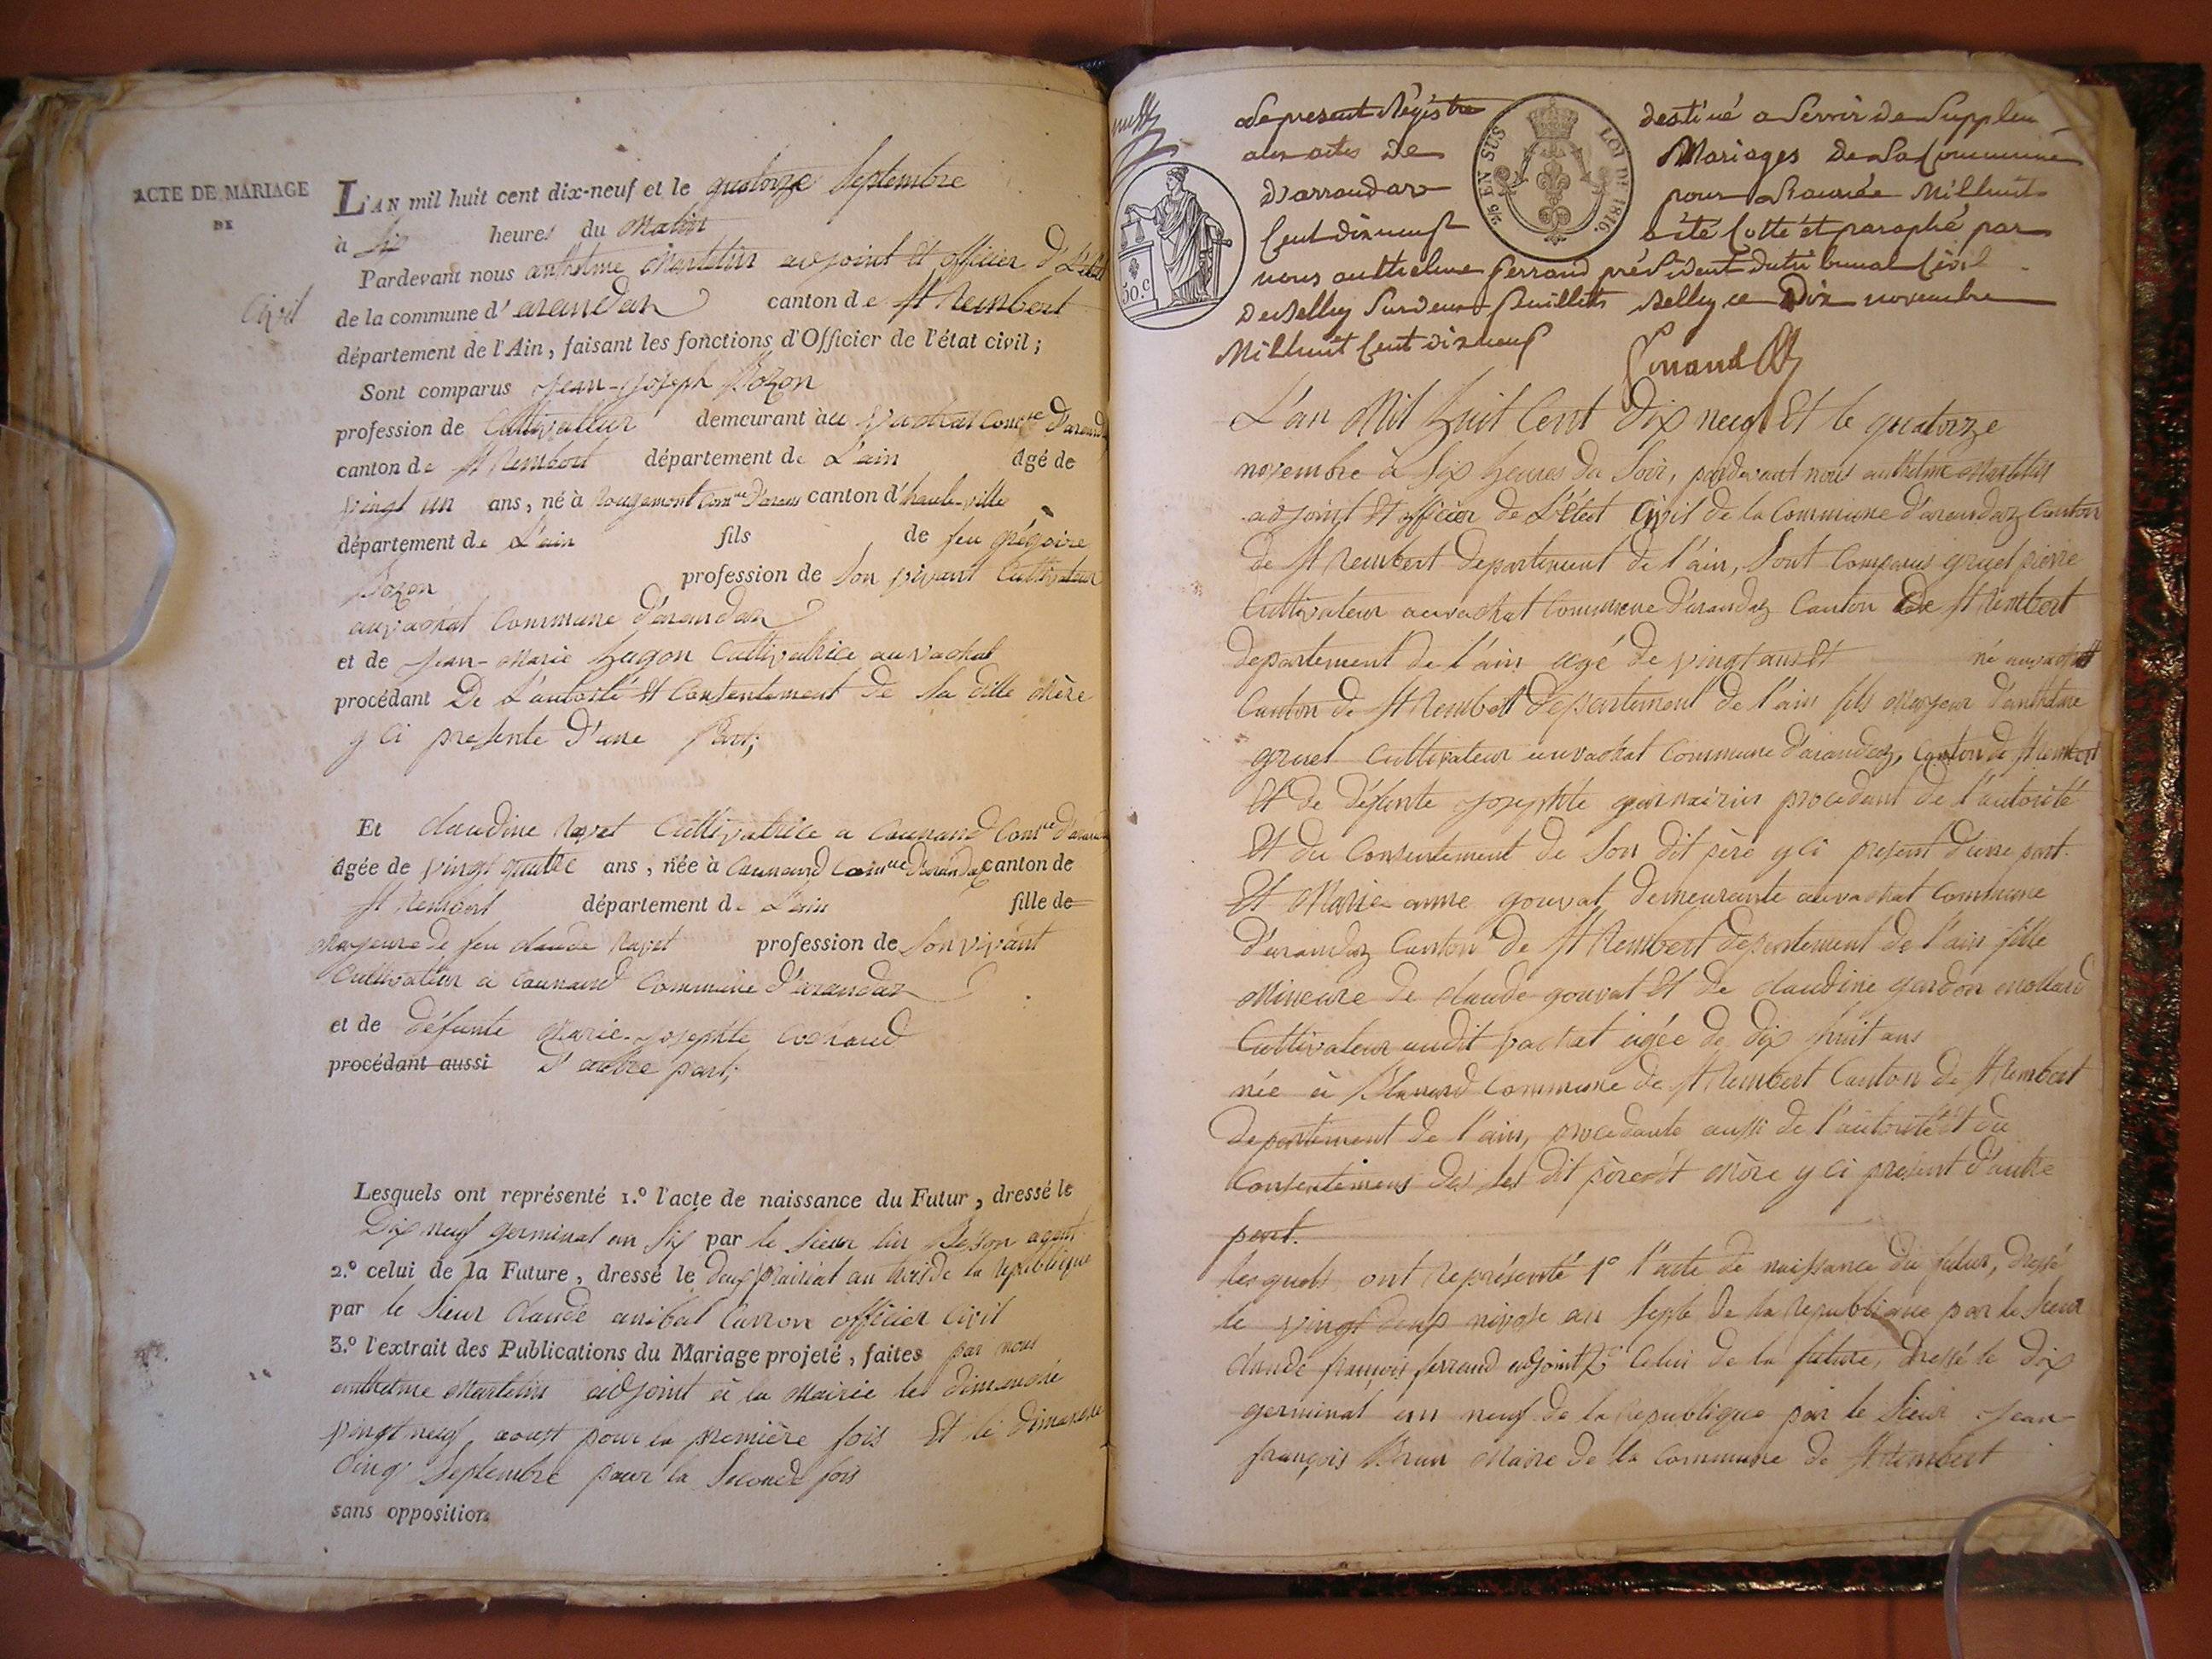 ACTE DE MARIAGE
DE
L'AN mil huit cent dix-neuf et le quatorze Septembre
à Six heures du Matin
Pardevant nous anthelme Martelin adjoint Et officier D L'état
Civil
de la commune d'arandas canton de St Rembert
département de l'Ain, faisant les fonctions d'Officier de l'état civil;
Sont comparus Jean-Joseph Bozon
profession de Cultivateur demeurant au vachat Comne D'arandas
canton de St Rembert département de L'ain âgé de
vingt un ans, né à Rougemont Comne D'arans canton d'hauteville
département de L'ain fils de feu grégoire
Bozon profession de Son vivant Cultivateur
au vachat Commune d'arandas
et de Jean-Marie hugon Cultivatrice au vachat
procédant De L'autorité Et Consentement de Sa ditte Mère
y Ci presente D'une Part;
Et claudine Ravet Cultivatrice a Counand Comne D'arandas
âgée de vingt quatre ans, née à Counand Comne D'arandas canton de
St Rembert département de L'ain fille de
Majeure de feu claude Ravet profession de Son vivant
Cultivateur a Counand Commune D'arandas
et de défunte Marie-Josephte Cochaud
procédant aussi D'autre part;
Lesquels ont représenté 1.º l'acte de naissance du Futur, dressé le
Dix neuf germinal an Six par le Sieur agent
2.º celui de la Future, dressé le Deux prairial an trois de la République
par le Sieur claude anibal Carron officier Civil
3.º l'extrait des Publications du Mariage projeté, faites par nous
anthelme Martelin adjoint à la Mairie le dimanche
vingt neuf aoust pour la première fois Et le dimanche
Cinq Septembre pour la Seconde fois
sans opposition
Le present Régistre destiné a Servir de Supplem
aux actes de Mariages De La Commune
D'arrandas pour L'année Mil huit
Cent dix neuf a été Cotté et paraphé par
nous anthelme ferrand président du tribunal Civil
De Belley Sur deux feuillets Belley ce Dix novembre
Mil huit Cent dix neuf
ferrand
EN SUS
LOI DE 1816.
50.c
L'an Mil huit Cent Dix neuf Et le quatorze
novembre à Six heures Du Soir, pardevant nous anthelme Martelin
adjoint Et officier de L'état Civil de la Commune d'arandaz Canton
de St Rembert Departement de l'ain, Sont Comparus gruet pierre
Cultivateur au vachat Commune D'arandaz Canton de St Rembert
Departement de l'ain agé de vingt ans Et né au vachat
Canton de St Rembert Departement de l'ain fils Majeur D'anthelme
gruet Cultivateur au vachat Commune d'arandaz, Canton de St Rembert
Et de Défunte Josephte procedant de l'autorité
Et du Consentement de Son dit père y Ci present d'une part.
Et Marie anne gouvat demeurante au vachat Commune
d'arandaz Canton de St Rembert departement de l'ain fille
Mineure de claude gouvat Et de claudine gardon mollard
Cultivateur audit vachat agée de dix huit ans
née à Blanad Commune de St Rembert Canton de St Rembert
Departement de l'ain, procedante aussi de l'autorité Et du
Consentement des Ses dit père et Mère y Ci present d'autre
part.
lesquels ont représenté 1º l'acte de naissance du futur, dressé
le vingt deux nivose an Sept de la République par le Sieur
claude françois ferrand adjoint 2º Celui de la future, dressé le dix
germinal an neuf de la République par le Sieur Jean
françois Brun Maire de la Commune de St Rembert